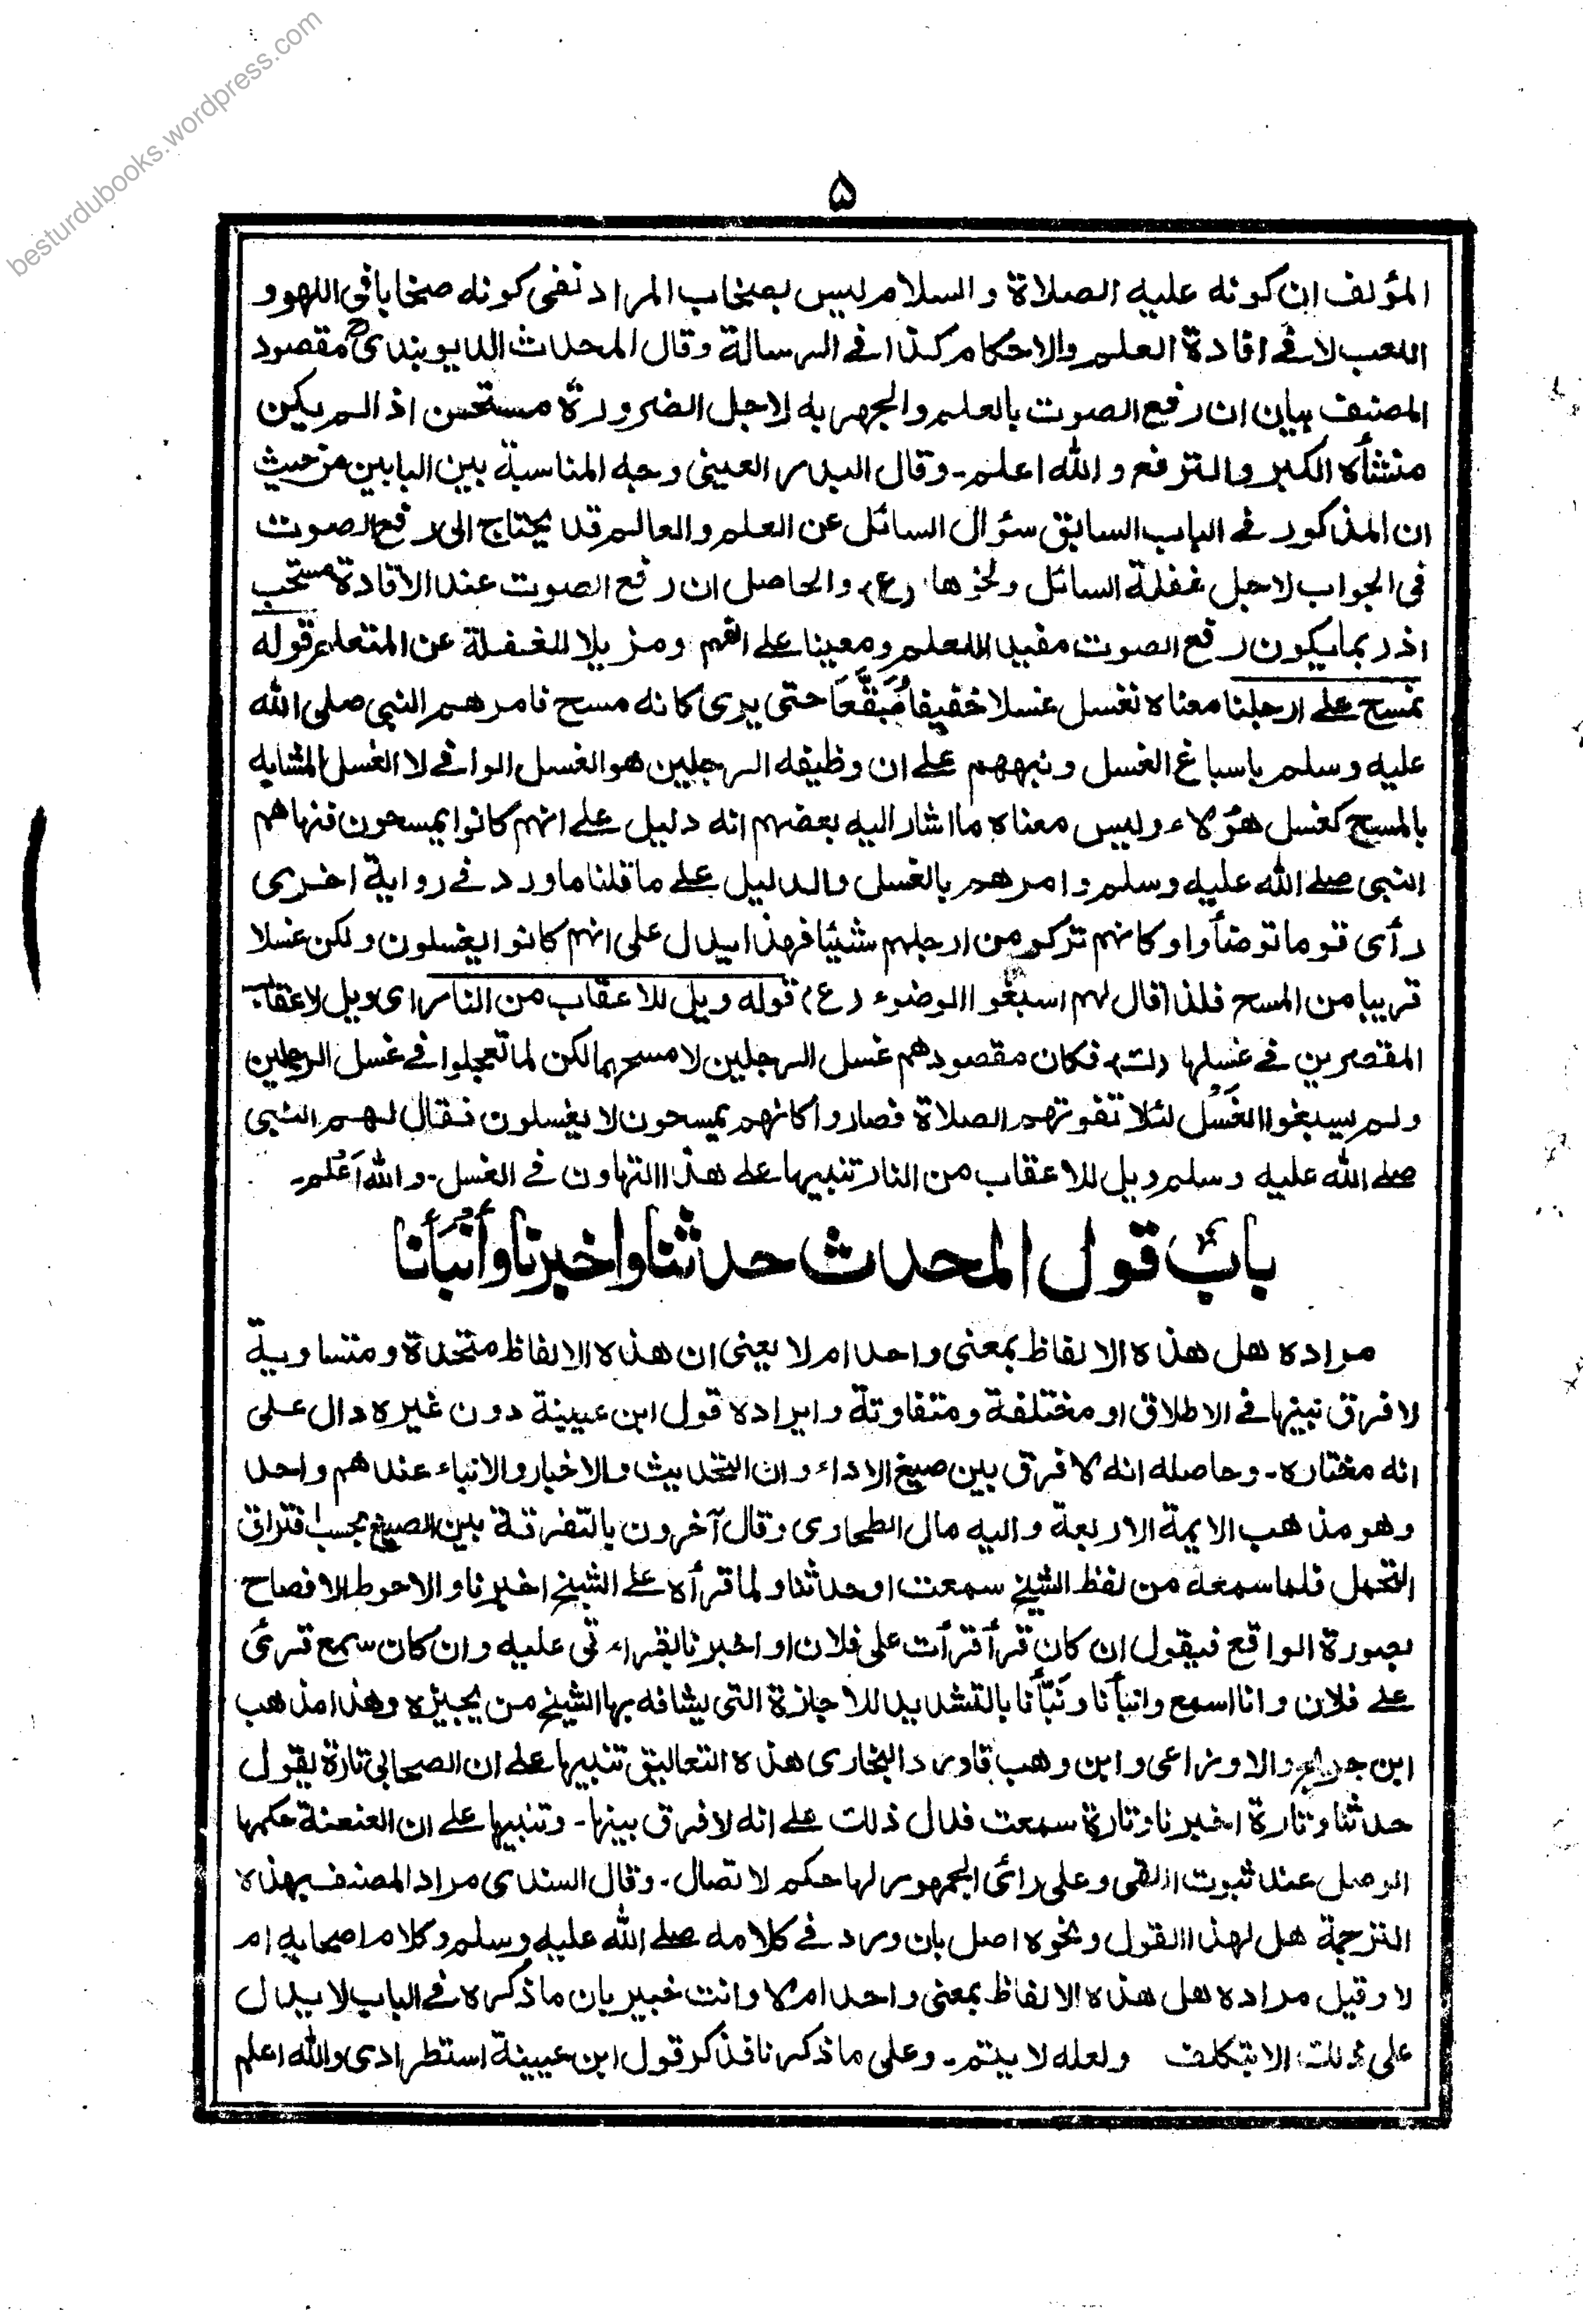 besturdubooks.wordpress.com
۵
المؤلف ان كونه عليه الصلاة والسلام ليس بصخاب المراد نفى كونه صخابا فى اللهو و
اللعب لا في افادة العلم والاحكام كذا في الرسالة وقال المحدث الديوبندى مقصود
المصنف بيان ان رفع الصوت بالعلم والجهر به لاجل الضرورة مستحسن اذا لم يكن
منشأه الكبر والترفع والله اعلم۔ وقال البدر العينى وجه المناسبة بين البابين من حيث
ان المذكور في الباب السابق سؤال السائل عن العلم والعالم قد يحتاج الى رفع الصوت
فى الجواب لاجل غفلة السائل ونحوها (ع) والحاصل ان رفع الصوت عند الافادة مستحب
اذ ربما يكون رفع الصوت مفيدا للعلم ومعينا على الفهم ومزيلا للغفلة عن المتعلم قوله
نمسح على ارجلنا معناه نغسل غسلا خفيفا مُبَقَّعًا حتى يرى كانه مسح فامرهم النبى صلى الله
عليه وسلم باسباغ الغسل ونبههم على ان وظيفه الرجلين هو الغسل الوافي لا الغسل المشابه
بالمسح كغسل هؤلاء وليس معناه ما اشار اليه بعضهم انه دليل على انهم كانوا يمسحون فنهاهم
النبى صلى الله عليه وسلم وامرهم بالغسل والدليل على ما قلنا ما ورد في رواية اخرى
رأى قوما توضأوا وكانهم تركو من ارجلهم شيئا فهذا يدل على انهم كانوا يغسلون ولكن غسلا
قريبا من المسح فلذا قال لهم اسبغوا الوضوء (ع) قوله ويل للاعقاب من النار اى ويل لاعقاب
المقتصرين في غسلها (ك) فكان مقصودهم غسل الرجلين لا مسحهما لكن لما تعجلوا في غسل الرجلين
ولم يسبغوا الغسل لئلا تفوتهم الصلاة فصاروا كانهم يمسحون لا يغسلون فقال لهم النبى
صلى الله عليه وسلم ويل للاعقاب من النار تنبيها على هذا التهاون في الغسل۔ والله اعلم۔
باب قول المحدث حدثنا واخبرنا وأنبأنا
مراده هل هذه الالفاظ بمعنى واحد ام لا يعنى ان هذه الالفاظ متحدة ومتساوية
لا فرق بينها في الاطلاق او مختلفة ومتفاوتة وايراده قول ابن عيينة دون غيره دال على
انه مختاره۔ وحاصله انه لا فرق بين صيغ الاداء وان التحديث والاخبار والانباء عندهم واحد
وهو مذهب الايمة الاربعة واليه مال الطحاوى وقال آخرون بالتفرقة بين الصيغ بحسب افتراق
التحمل فلما سمعه من لفظ الشيخ سمعت او حدثنا ولما قرأه على الشيخ اخبرنا والاحوط الافصاح
بصورة الواقع فيقول ان كان قرأ قرأت على فلان او اخبرنا بقراءتى عليه وان كان سمع قرئ
على فلان وانا اسمع وانبأنا ونَبَّأنا بالتشديد للاجازة التى يشافه بها الشيخ من يجيزه وهذا مذهب
ابن جريج والاوزاعى وابن وهب فاورد البخارى هذه التعاليق تنبيها على ان الصحابى تارة يقول
حدثنا وتارة اخبرنا وتارة سمعت فدل ذلك على انه لا فرق بينها۔ وتنبيها على ان العنعنة حكمها
الوصل عند ثبوت اللقى وعلى رائى الجمهور لها حكم لاتصال۔ وقال السندى مراد المصنف بهذه
الترجمة هل لهذا القول ونحوه اصل بان ورد في كلامه صلى الله عليه وسلم وكلام اصحابه ام
لا وقيل مراده هل هذه الالفاظ بمعنى واحد ام لا وانت خبير بان ما ذكره في الباب لا يدل
على ذلك الا بتكلف ولعله لا يتم۔ وعلى ما ذكرنا فذكر قول ابن عيينة استطرادى والله اعلم